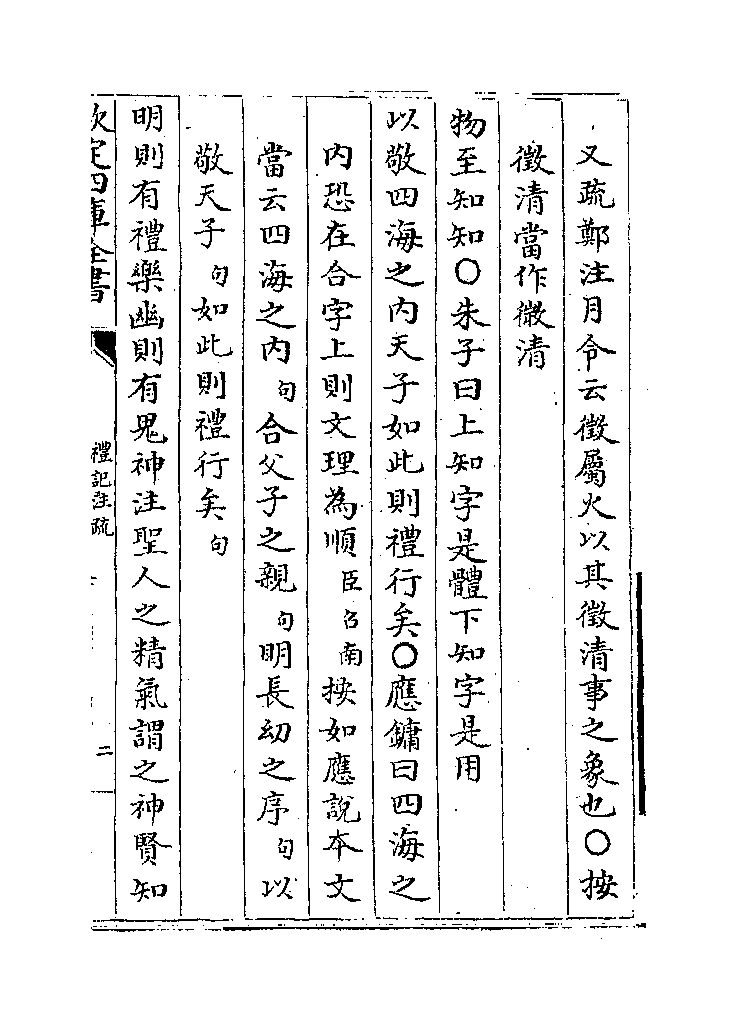 又疏鄭注月令云徵屬火以其徵清事之象也〇按
徵清當作微清
物至知知〇朱子曰上知字是體下知字是用
以敬四海之内天子如此則禮行矣〇應鏞曰四海之
内恐在合字上則文理為順臣召南按如應說本文
當云四海之内句合父子之親句明長幼之序句以
敬天子句如此則禮行矣句
明則有禮樂幽則有鬼神注聖人之精氣謂之神賢知
欽定四庫全書
禮記注疏
二